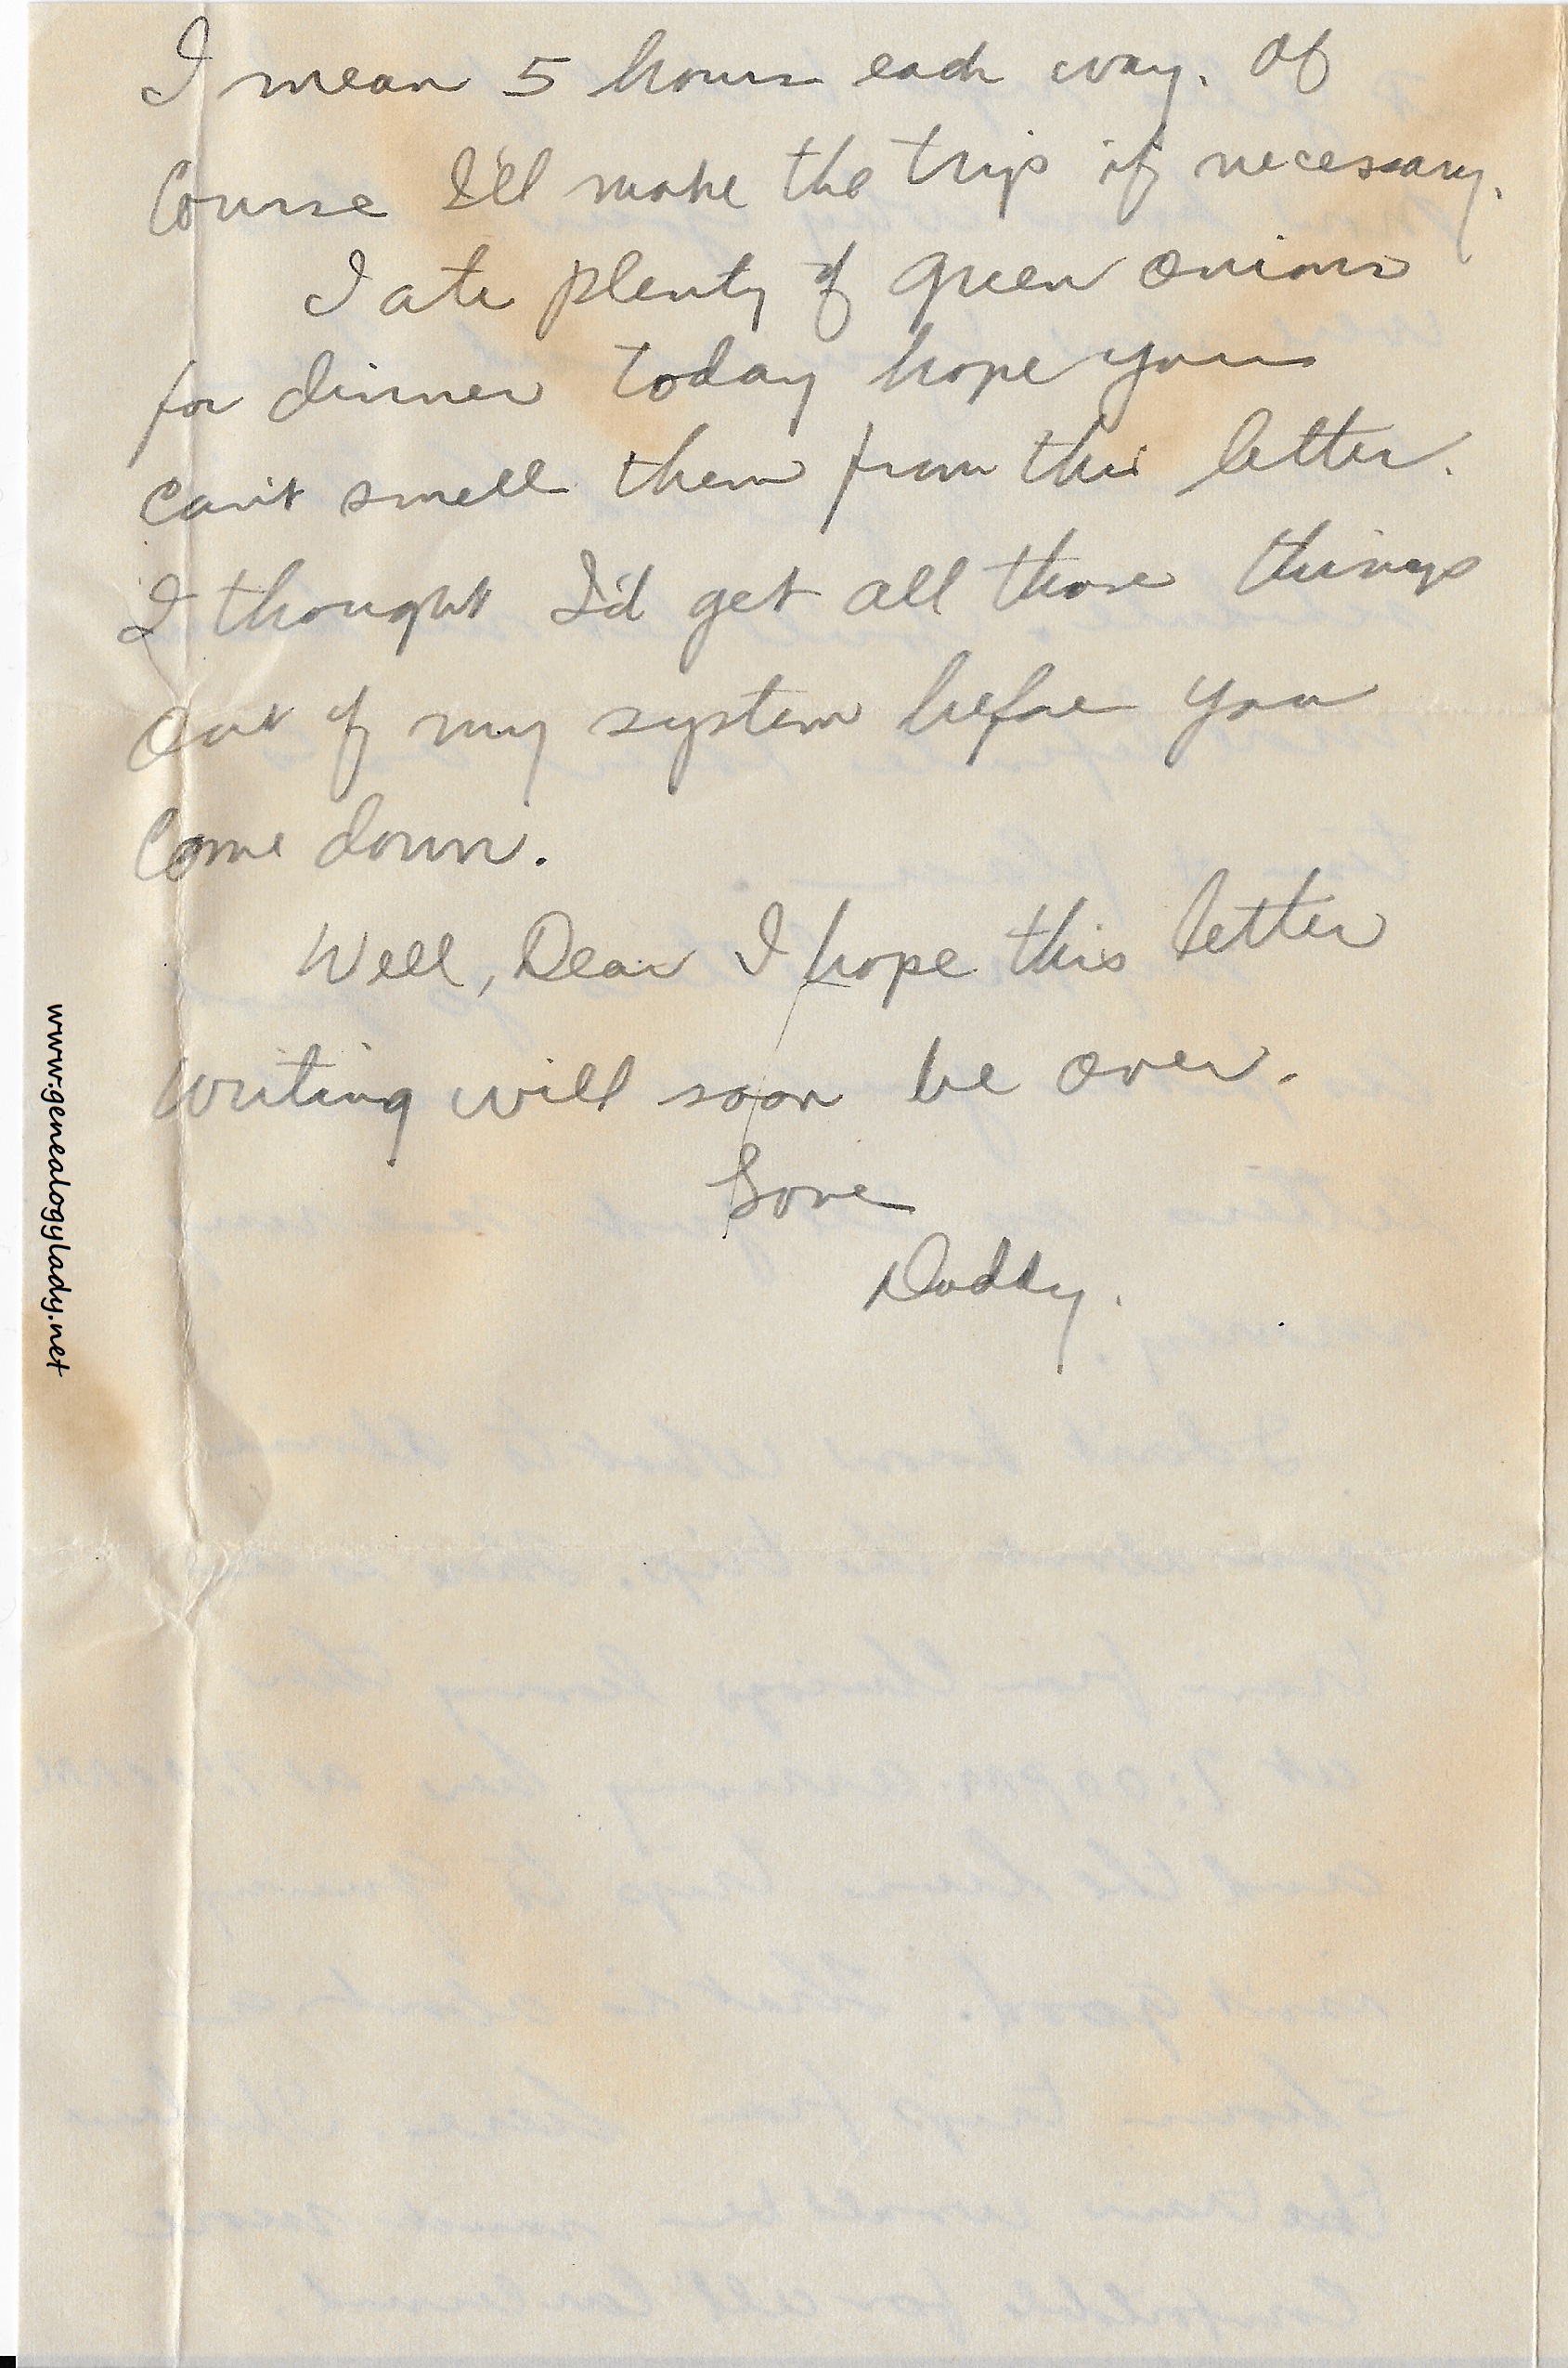 I mean 5 hours each way. Of
Course I'll make the trip if necessary.
I ate plenty of green onions
for dinner today hope you
can't smell them from this letter.
I thought I'd get all those things
out of my system before you
Come down.
Well, Dear I hope this letter
writing will soon be over.
Love
Daddy.
www.genealogylady.net